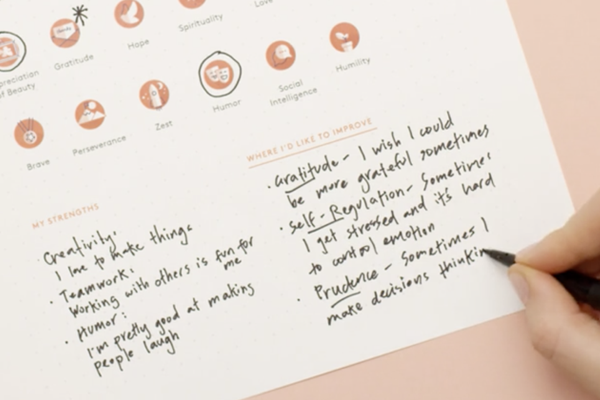 Love
Spirituality
Hope
Gratitude
preciation
of Beauty
Humility
Social
Intelligence
Humor
Zest
Perseverance
Brave
MY STRENGTHS
· Creativity:
I love to make things
· Teamwork:
Working with others is fun for
me
· Humor:
I'm pretty good at making
people laugh
WHERE I'D LIKE TO IMPROVE
· Gratitude - I wish I could
be more grateful sometimes
· Self-Regulation - Sometimes
I get stressed and it's hard
to control emotion
· Prudence - Sometimes I
make decisions thinkin